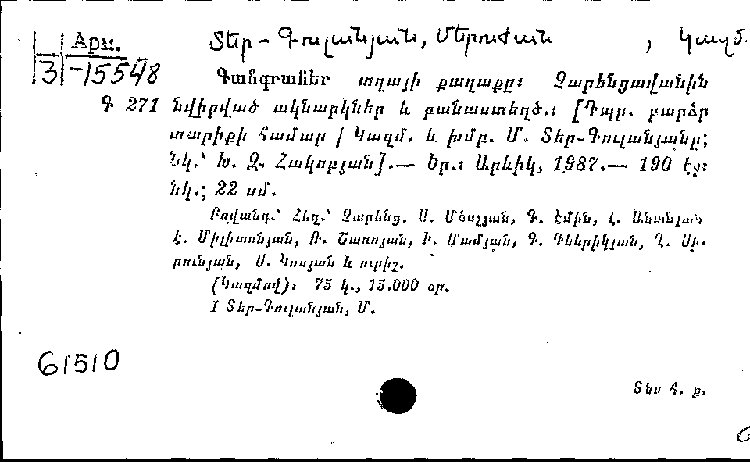 Արմ.
3 -15548
Տեր-Գուլանյան, Մերուժան, Կազմ.
Գանգրահեր տղայի քաղաքը: Չարենցավանին
Գ 271 նվիրված ակնարկներ և բանաստեղծ.: [Դպր. բարձր
տարիքի համար / Կազմ. և խմբ. Մ. Տեր-Գուլանյանը;
նկ.՝ Խ. Զ. Հակոբյան].— Եր.: Արևիկ, 1987.— 190 էջ:
նկ.; 22 սմ.
Բովանդ.՝ Հեղ.՝ Չարենց. Ս. Մեսչյան, Գ. Էմին, Լ.
Է. Միլիտոնյան, Ռ. Շառոյան, Գ. Գևրիկյան,
րունյան, Ս. Կոսյան և ուրիշ.
(Կազմով): 75 կ., 15.000 օր.
I Տեր-Գուլանյան, Մ.
61510
Տես Հ. ք.